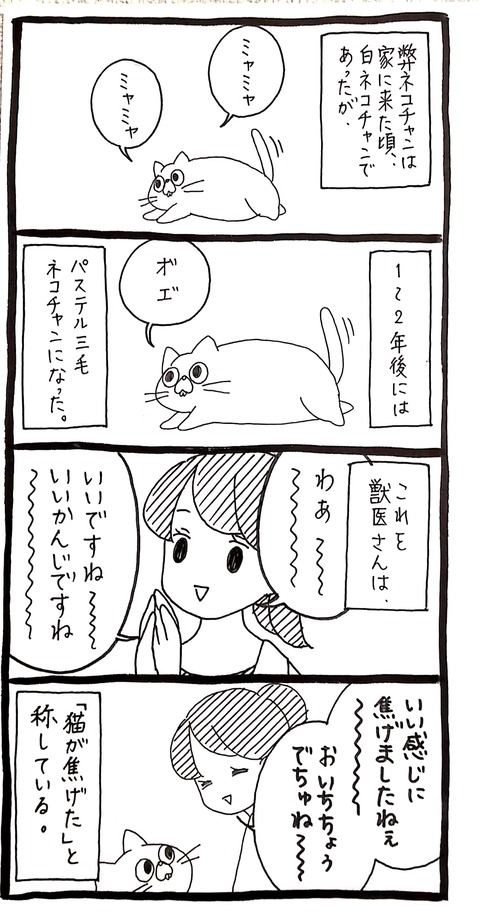 弊ネコチャンは
家に来た頃、
白ネコチャンで
あったが、
ミャミャ
ミャミャ
1〜2年後には
オ゛エ゛
パステル三毛
ネコチャンになった。
これを
獣医さんは、
わぁ〜〜
いいですね〜〜
いいかんじですね〜〜
いい感じに
焦げましたねぇ〜〜
おいちちょう
でちゅね〜〜
「猫が焦げた」と
称している。